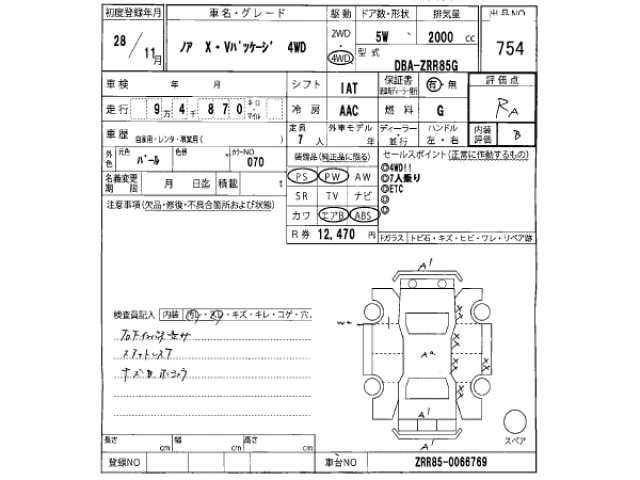 初度登録年月 車名・グレード 駆動 ドア数・形状 排気量 出品NO
28/11月 ノア X・Vパッケージ 4WD 2WD 4WD 5W 2000cc 754
型式 DBA-ZRR85G
車検 年 月 シフト IAT 保証書 有・無 評価点
走行 9万4千870 キロ マイル 冷房 AAC 燃料 G RA
車歴 自家用・レンタ・事業用( ) 定員 7人 外車モデル 年 ディーラー・並行 ハンドル 左・右 内装評価 B
外色 元色 パール 色替 カラーNO 070
装備品(純正品に限る) セールスポイント(正常に作動するもの)
名義変更期限 月 日迄 積載 t
PS PW AW ◎4WD!!
SR TV ナビ ◎7人乗り
カワ エアB ABS ◎ETC
◎
◎
注意事項(欠品・修復・不具合箇所および状態)
R券 12,470円
Fガラス トビ石・キズ・ヒビ・ワレ・リペア跡
A1
検査員記入 内装 ・キズ・キレ・コゲ・穴
A2
A1
A1
スペア
長さ cm 幅 cm 高さ cm
登録NO 車台NO ZRR85-0066769